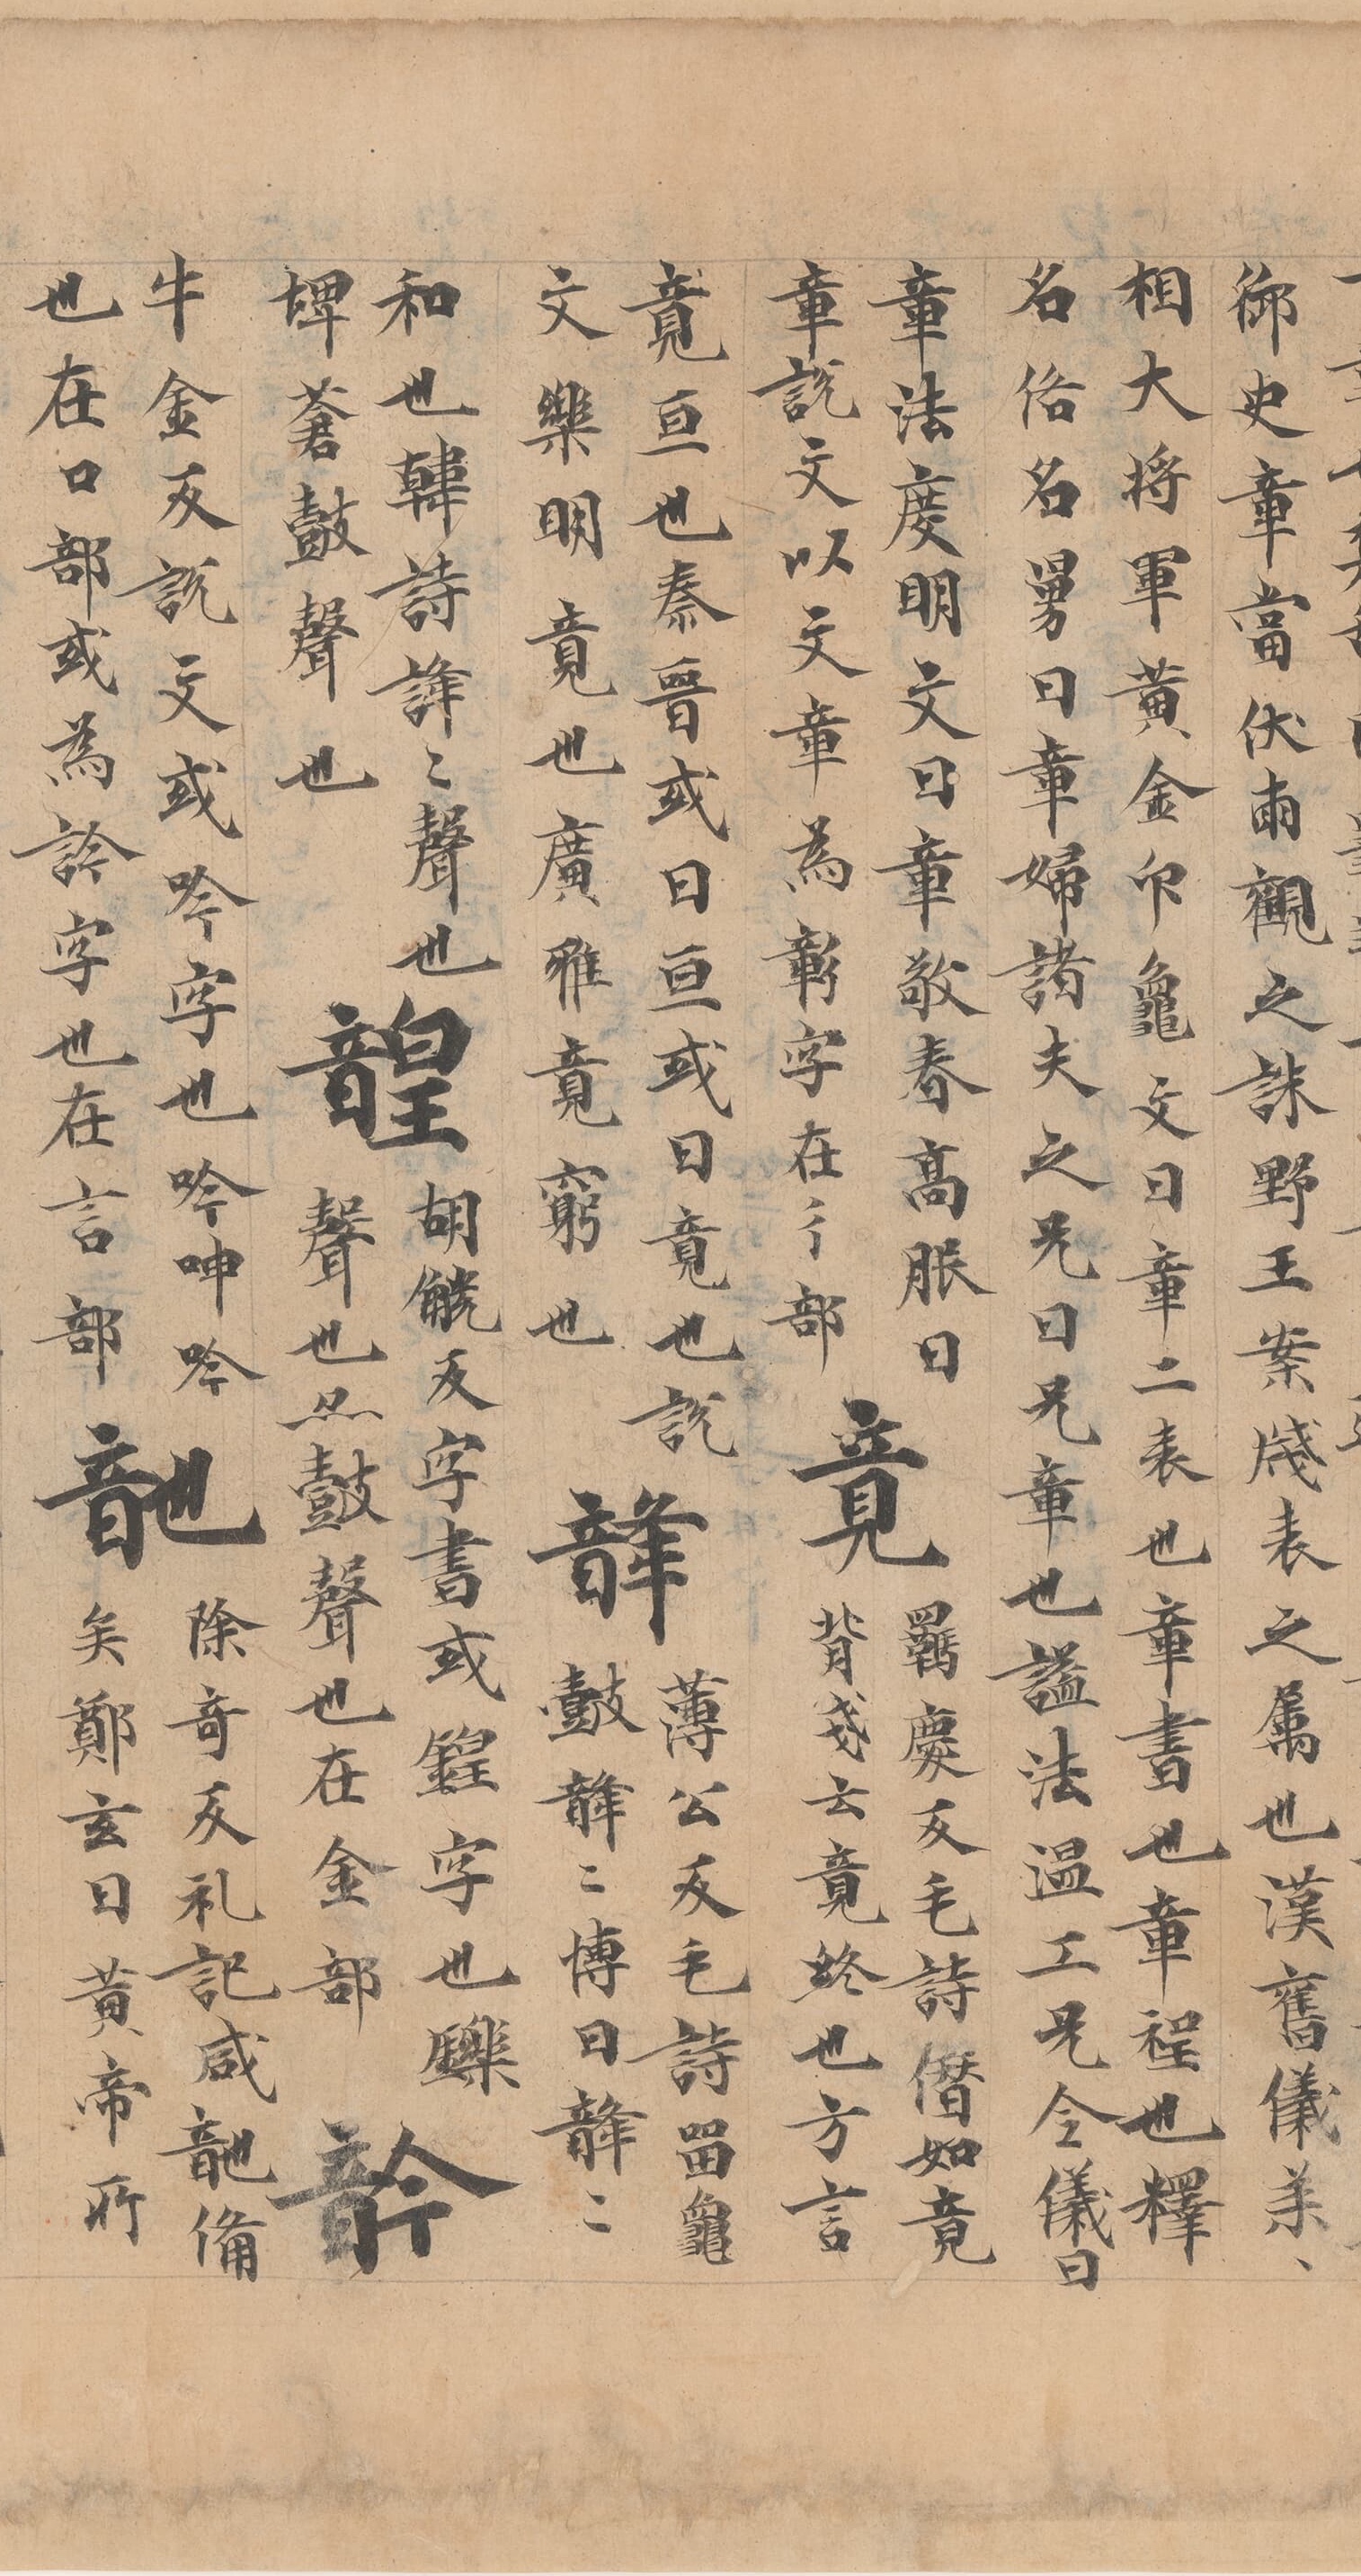 御史章當伏雨觀之誅野王案牋表之属也漢舊儀羕、
相大将軍黃金印龜文曰章二表也章書也章程也釋
名俗名舅曰章婦諸夫之兄曰兄章也謚法温工兄令儀曰
章法度明文曰章敬春高脹曰
章說文以文章為彰字在彡部
竟
羇慶反毛詩僭如竟
背戔云竟終也方言
竟亘也秦晉或曰亘或曰竟也說
文樂明竟也廣雅竟窮也
韸
薄公反毛詩㽞龜
鼓韸〻博曰韸〻
和也韓詩韸〻聲也
埤蒼鼓聲也
韹
胡觥反字書或鍠字也
聲也亦鼓聲也在金部
䪩
牛金反說文或吟字也吟呻吟
也在口部或為訡字也在言部
䪧
除奇反礼記咸䪧備
矣鄭玄曰黄帝所